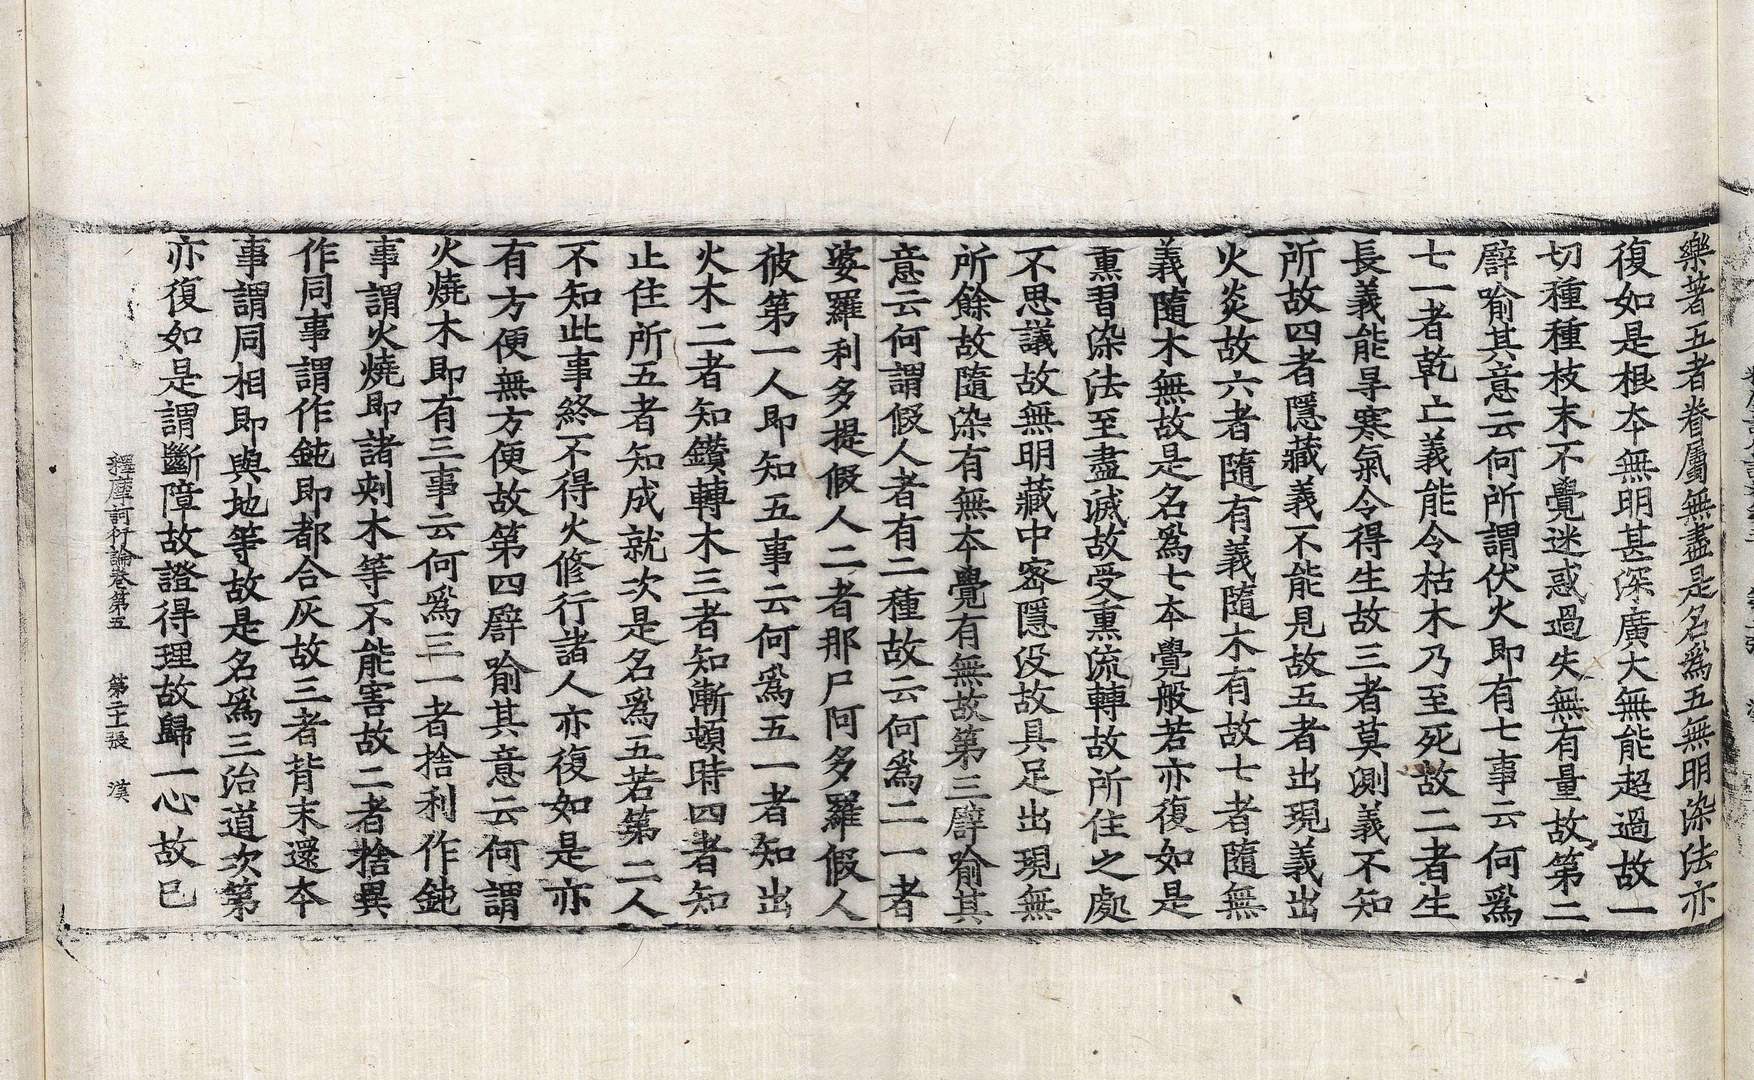 樂著五者眷屬無盡是名爲五無明染法亦
復如是根本無明甚深廣大無能超過故一
切種種枝末不覺迷惑過失無有量故第二
譬喻其意云何所謂伏火即有七事云何爲
七一者乾亡義能令枯木乃至死故二者生
長義能㝵寒氣令得生故三者莫測義不知
所故四者隱藏義不能見故五者出現義出
火炎故六者隨有義隨木有故七者隨無
義隨木無故是名爲七本覺般若亦復如是
熏習染法至盡滅故受熏流轉故所住之處
不思議故無明藏中密隱没故具足出現無
所餘故隨染有無本覺有無故第三譬喻其
意云何謂假人者有二種故云何爲二一者
婆羅利多提假人二者那尸阿多羅假人
彼第一人即知五事云何爲五一者知出
火木二者知鑽轉木三者知漸頓時四者知
止住所五者知成就次是名爲五若第二人
不知此事終不得火修行諸人亦復如是亦
有方便無方便故第四譬喻其意云何謂
火燒木即有三事云何爲三一者捨利作鈍
事謂火燒即諸刾木等不能害故二者捨異
作同事謂作鈍即都合灰故三者背末還本
事謂同相即與地等故是名爲三治道次第
亦復如是謂斷障故證得理故歸一心故已
釋摩訶衍論卷第五 第二十張 漢